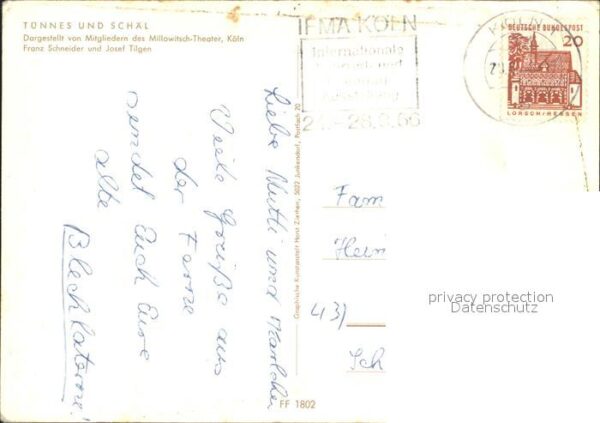 TÜNNES UND SCHÄL
Dargestellt von Mitgliedern des Millowitsch-Theater, Köln
Franz Schneider und Josef Tilgen
IFMA KÖLN
Internationale
und
Ausstellung
24.–28.9.66
KÖLN
DEUTSCHE BUNDESPOST
20
LORSCH/HESSEN
Liebe Mutti und
Viele Grüße aus
der Ferne
sendet Euch Eure
alte
Blechlaterne!
Graphische Kunstanstalt Horst Ziethen, 5022 Junkersdorf, Postfach 70
FF 1802
Fam
Hein
43)
Sch
privacy protection
Datenschutz